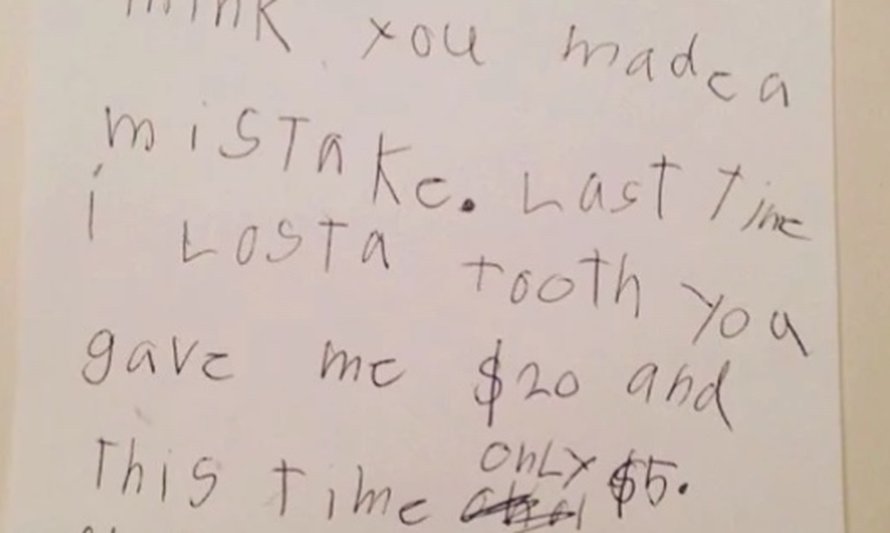 think you made a
mistake. Last Time
i Lost a tooth you
gave me $20 and
This Time only $5.